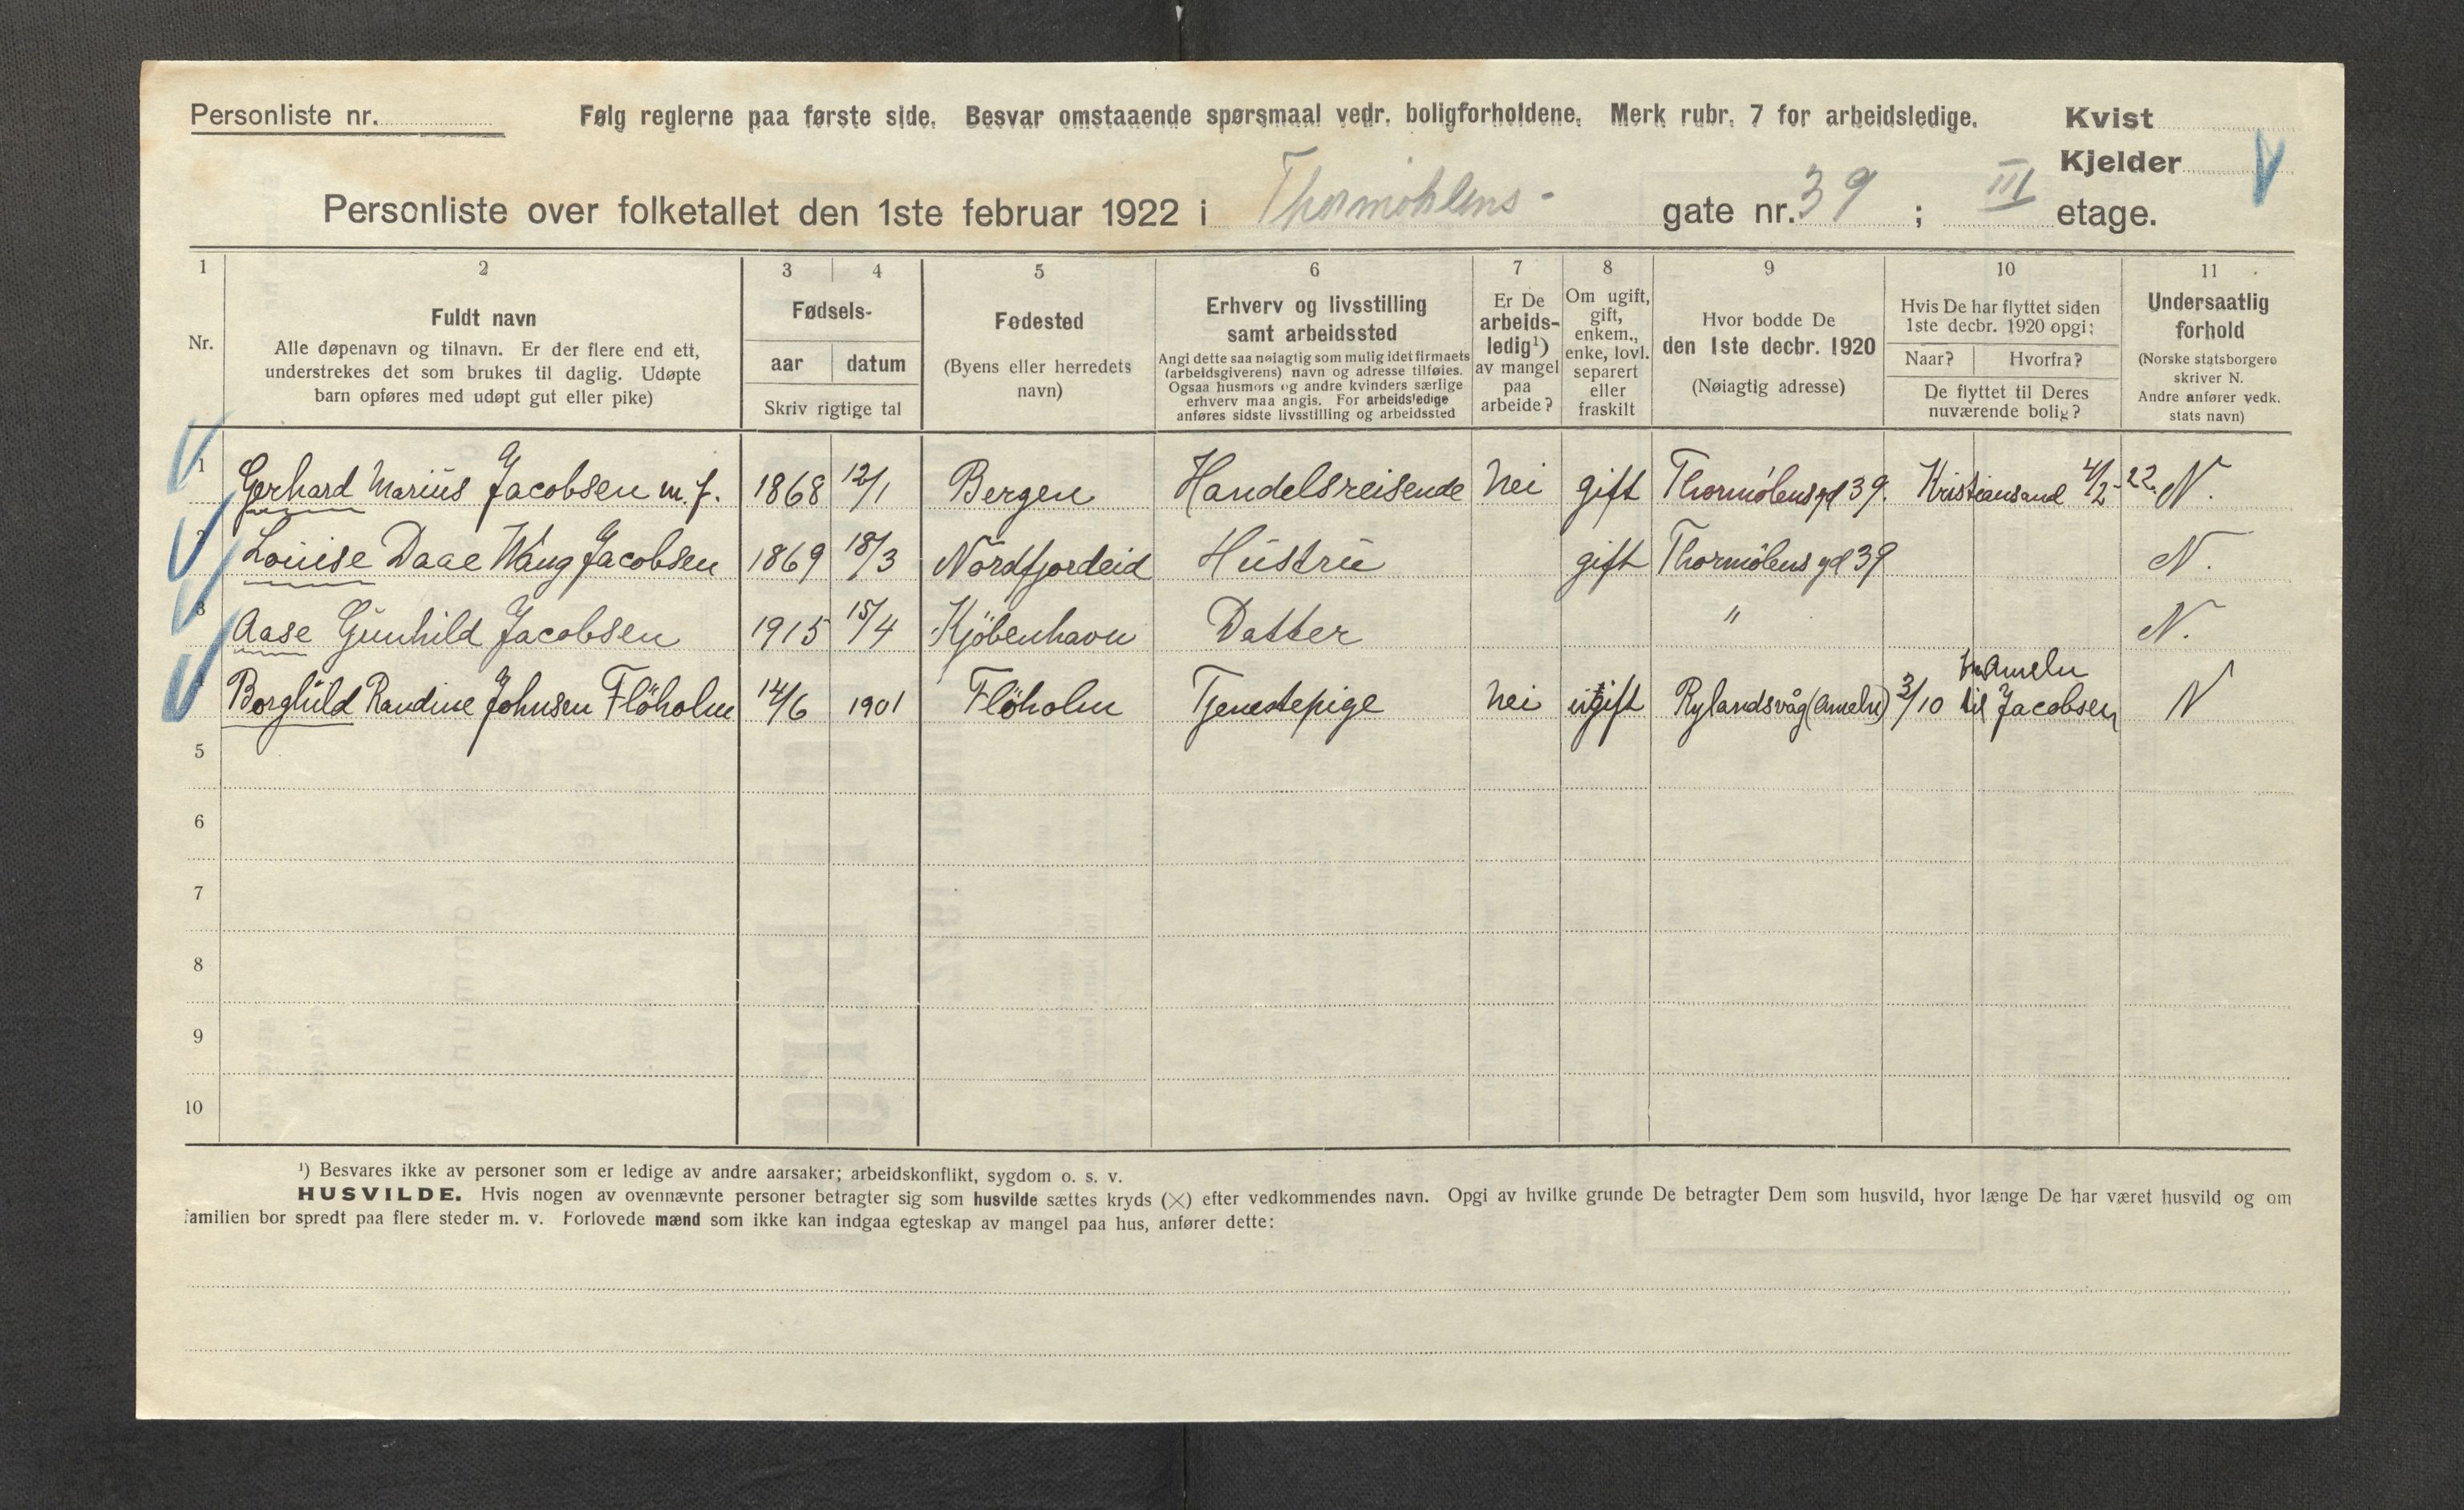 Personliste nr.
Følg reglerne paa første side. Besvar omstaaende spørsmaal vedr. boligforholdene. Merk rubr. 7 for arbeidsledige.
Kvist
Kjelder
Personliste over folketallet den 1ste februar 1922 i Thormöhlens- gate nr. 39 ; III etage.
1 2 3 4 5 6 7 8 9 10 11
Nr.
Fuldt navn
Alle døpenavn og tilnavn. Er der flere end ett,
understrekes det som brukes til daglig. Udøpte
barn opføres med udøpt gut eller pike)
Fødsels-
aar datum
Skriv rigtige tal
Fødested
(Byens eller herredets
navn)
Erhverv og livsstilling
samt arbeidssted
Angi dette saa nøiagtig som mulig idet firmaets
(arbeidsgiverens) navn og adresse tilføies.
Ogsaa husmors og andre kvinders særlige
erhverv maa angis. For arbeidsledige
anføres sidste livsstilling og arbeidssted
Er De
arbeids-
ledig¹)
av mangel
paa
arbeide?
Om ugift,
gift,
enkem.,
enke, lovl.
separert
eller
fraskilt
Hvor bodde De
den 1ste decbr. 1920
(Nøiagtig adresse)
Hvis De har flyttet siden
1ste decbr. 1920 opgi:
Naar? Hvorfra?
De flyttet til Deres
nuværende bolig?
Undersaatlig
forhold
(Norske statsborgere
skriver N.
Andre anfører vedk.
stats navn)
1 Gerhard Marius Jacobsen m.f. 1868 12/1 Bergen Handelsreisende Nei gift Thormölensgd 39. Kristiansand 4/2-22. N.
2 Louise Daae Wang Jacobsen 1869 18/3 Nordfjordeid Hustru gift Thormölens gd 39 N.
3 Aase Gunhild Jacobsen 1915 15/4 Kjöbenhavn Datter " N.
4 Borghild Randine Johnsen Flöholm 14/6 1901 Flöholm Tjenestepige Nei ugift Rylandsvåg (Ameln) 3/10 Ameln til Jacobsen N
5
6
7
8
9
10
¹) Besvares ikke av personer som er ledige av andre aarsaker; arbeidskonflikt, sygdom o. s. v.
HUSVILDE. Hvis nogen av ovennævnte personer betragter sig som husvilde sættes kryds (×) efter vedkommendes navn. Opgi av hvilke grunde De betragter Dem som husvild, hvor længe De har været husvild og om
familien bor spredt paa flere steder m. v. Forlovede mænd som ikke kan indgaa egteskap av mangel paa hus, anfører dette: